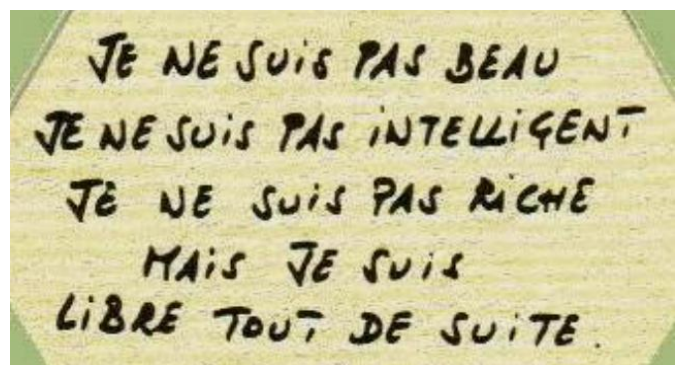 JE NE SUiS PAS BEAU
JE NE SUiS PAS iNTELLiGENT
JE NE SUiS PAS RiCHE
MAiS JE SUiS
LiBRE TOUT DE SUiTE.